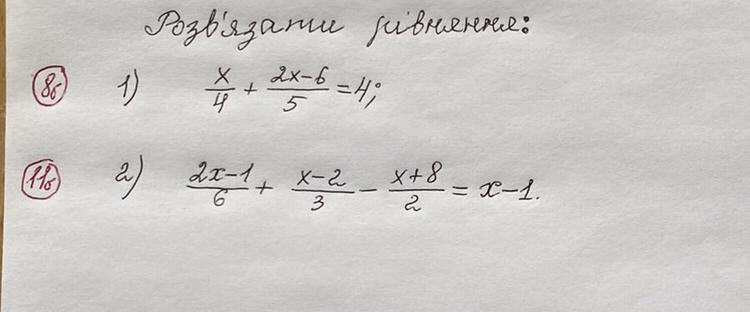 Розв'язати рівняння:
8б 1) x/4 + (2x-6)/5 = 4;
11б 2) (2x-1)/6 + (x-2)/3 - (x+8)/2 = x-1.